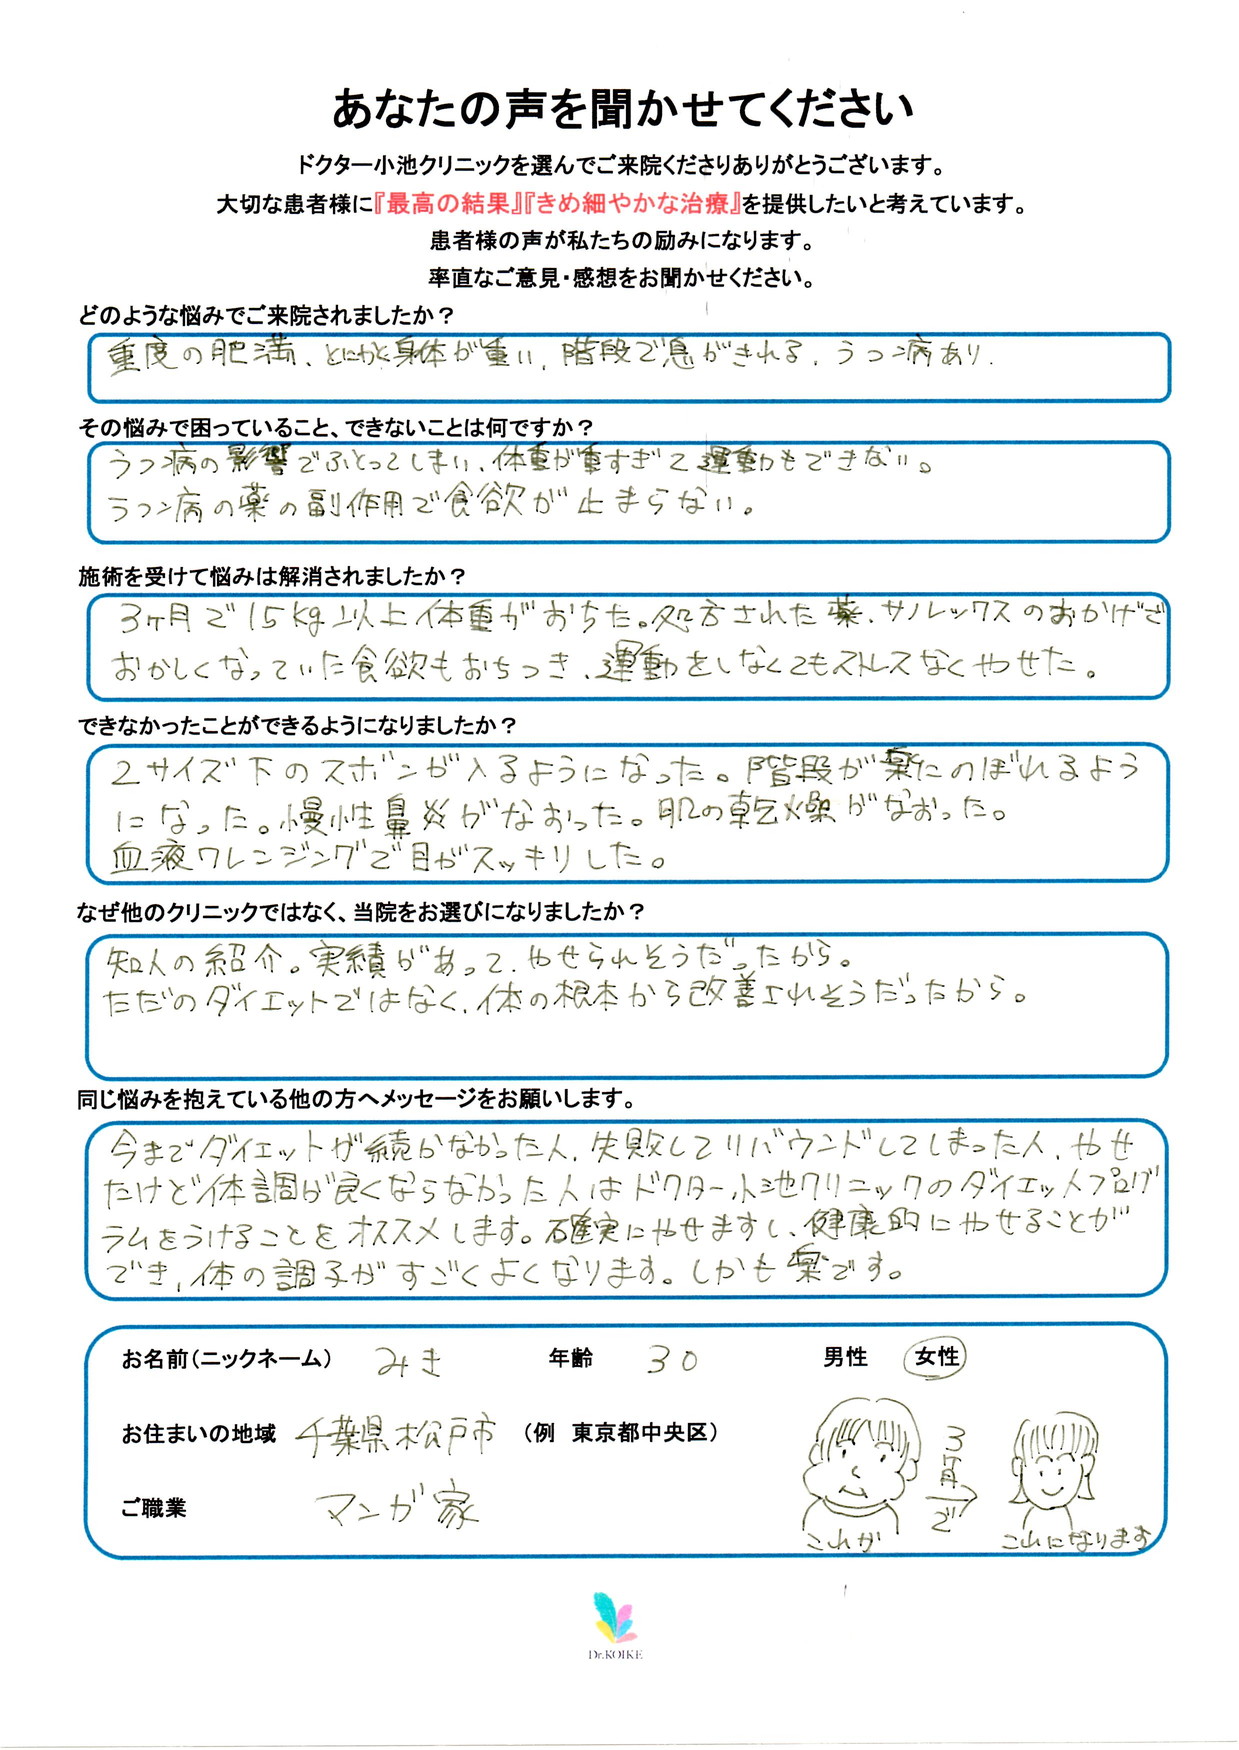 あなたの声を聞かせてください
ドクター小池クリニックを選んでご来院くださりありがとうございます。
大切な患者様に『最高の結果』『きめ細やかな治療』を提供したいと考えています。
患者様の声が私たちの励みになります。
率直なご意見・感想をお聞かせください。
どのような悩みでご来院されましたか？
重度の肥満、とにかく身体が重い、階段で息がきれる、うつ病あり.
その悩みで困っていること、できないことは何ですか？
うつ病の影響でふとってしまい、体重が重すぎて運動もできない。
うつ病の薬の副作用で食欲が止まらない。
施術を受けて悩みは解消されましたか？
3ヶ月で15kg以上体重がおちた。処方された薬、サノレックスのおかげで
おかしくなっていた食欲もおちつき、運動をしなくてもストレスなくやせた。
できなかったことができるようになりましたか？
2サイズ下のズボンが入るようになった。階段が楽にのぼれるよう
になった。慢性鼻炎がなおった。肌の乾燥がなおった。
血液クレンジングで目がスッキリした。
なぜ他のクリニックではなく、当院をお選びになりましたか？
知人の紹介。実績があって、やせられそうだったから。
ただのダイエットではなく、体の根本から改善されそうだったから。
同じ悩みを抱えている他の方へメッセージをお願いします。
今までダイエットが続かなかった人、失敗してリバウンドしてしまった人、やせ
たけど体調が良くならなかった人はドクター小池クリニックのダイエットプログ
ラムをうけることをオススメします。確実にやせますし、健康的にやせることが
でき、体の調子がすごくよくなります。しかも楽です。
お名前（ニックネーム） みき 年齢 30 男性 女性
お住まいの地域 千葉県松戸市 （例 東京都中央区）
ご職業 マンガ家
これが 3ヶ月で これになります
Dr.KOIKE